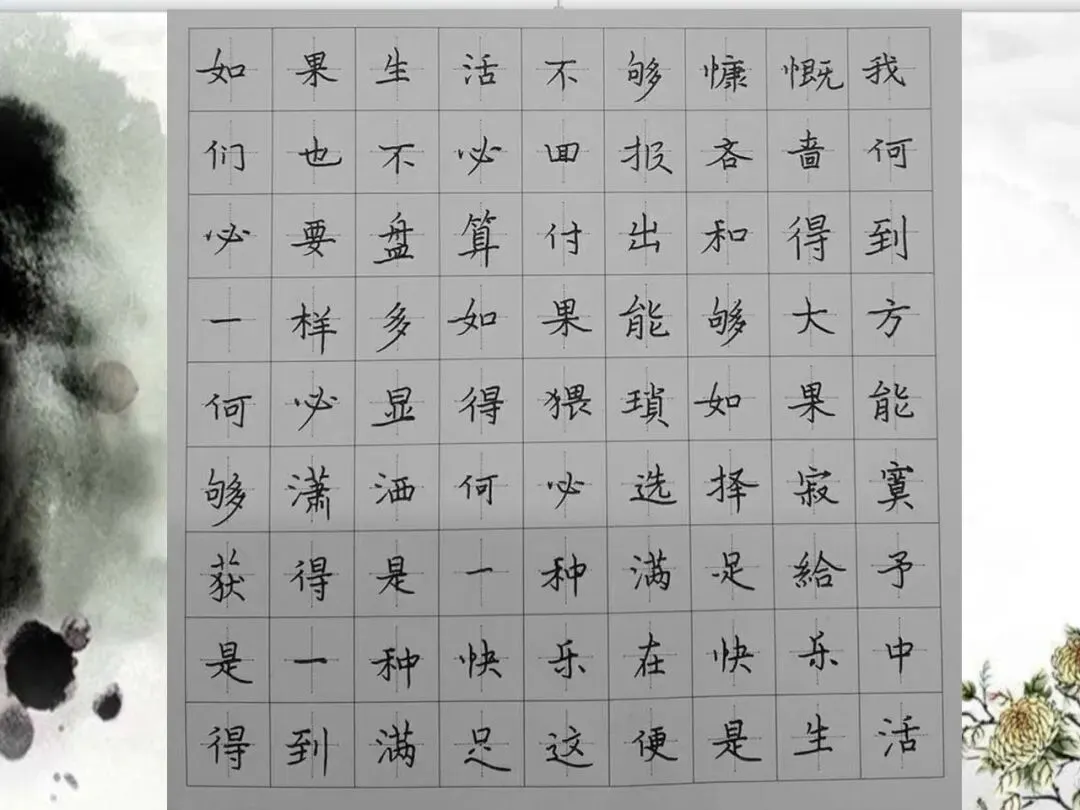 如果生活不够慷慨我
们也不必回报吝啬何
必要盘算付出和得到
一样多如果能够大方
何必显得猥琐如果能
够潇洒何必选择寂寞
获得是一种满足給予
是一种快乐在快乐中
得到满足这便是生活